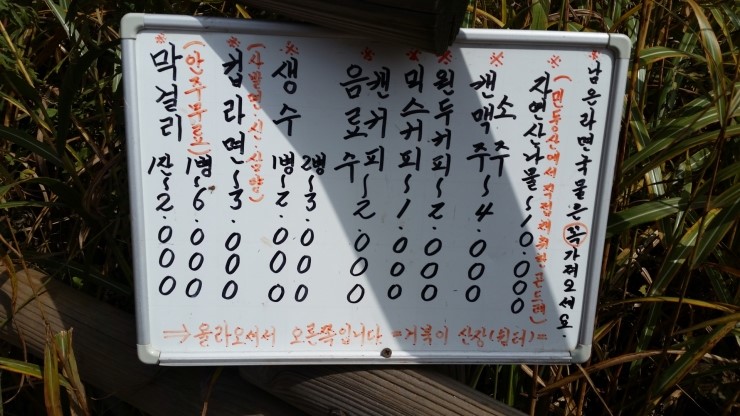 ※막걸리 1잔~2.000
(안주무료) 1병~6.000
※컵라면~3.000
(사발면.신.삼양)
※생수 1병~2.000
2병~3.000
음료수
※캔커피~2.000
※믹스커피~1.000
※원두커피~2.000
※캔맥주~4.000
소주
※자연산나물~10.000
(민둥산에서 직접채취한 곤드레)
※남은라면국물은 꼭 가져오세요.
→올라오셔서 오른쪽입니다 =거북이 산장(쉼터)=